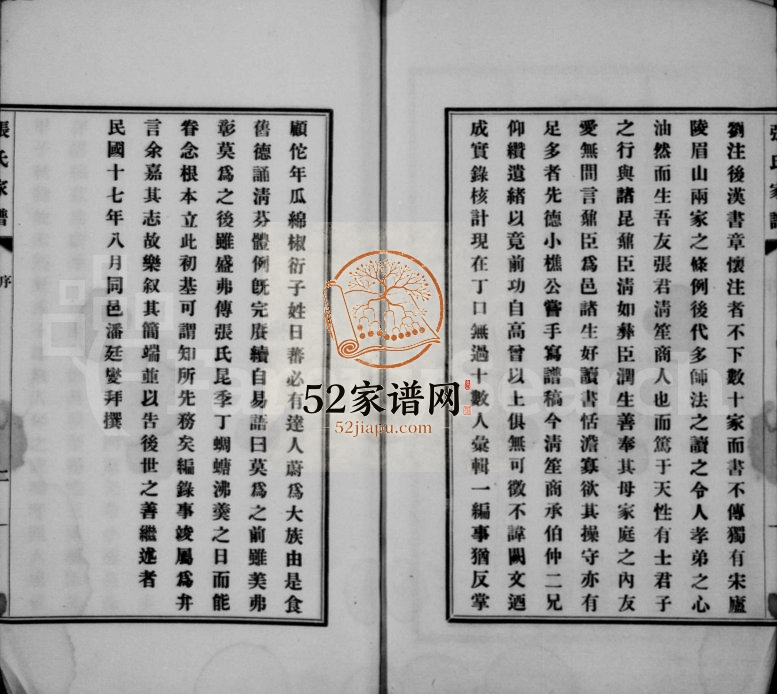 張氏家譜
劉注後漢書章懷注者不下數十家而書不傳獨有宋廬
陵眉山兩家之條例後代多師法之讀之令人孝弟之心
油然而生吾友張君清笙商人也而篤于天性有士君子
之行與諸昆鼐臣清如彝臣潤生善奉其母家庭之內友
愛無間言鼐臣為邑諸生好讀書恬澹寡欲其操守亦有
足多者先德小樵公嘗手寫譜稿今清笙商承伯仲二兄
仰纘遺緒以竟前功自高曾以上俱無可徵不諱闕文迺
成實錄核計現在丁口無過十數人彙輯一編事猶反掌
顧佗年瓜綿椒衍子姓日蕃必有達人蔚為大族由是食
舊德誦清芬體例既完賡續自易語曰莫為之前雖美弗
彰莫為之後雖盛弗傳張氏昆季丁蜩螗沸羹之日而能
眷念根本立此初基可謂知所先務矣編錄事竣屬為弁
言余嘉其志故樂叙其簡端並以告後世之善繼述者
民國十七年八月同邑潘廷燮拜撰
張氏家譜
序
52家谱网
52jiapu.com